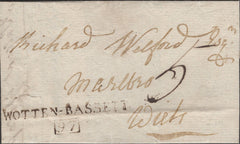 Richard Wilford Esqr
Marlbro
5
Wilts
WOTTEN-BASSETT
97